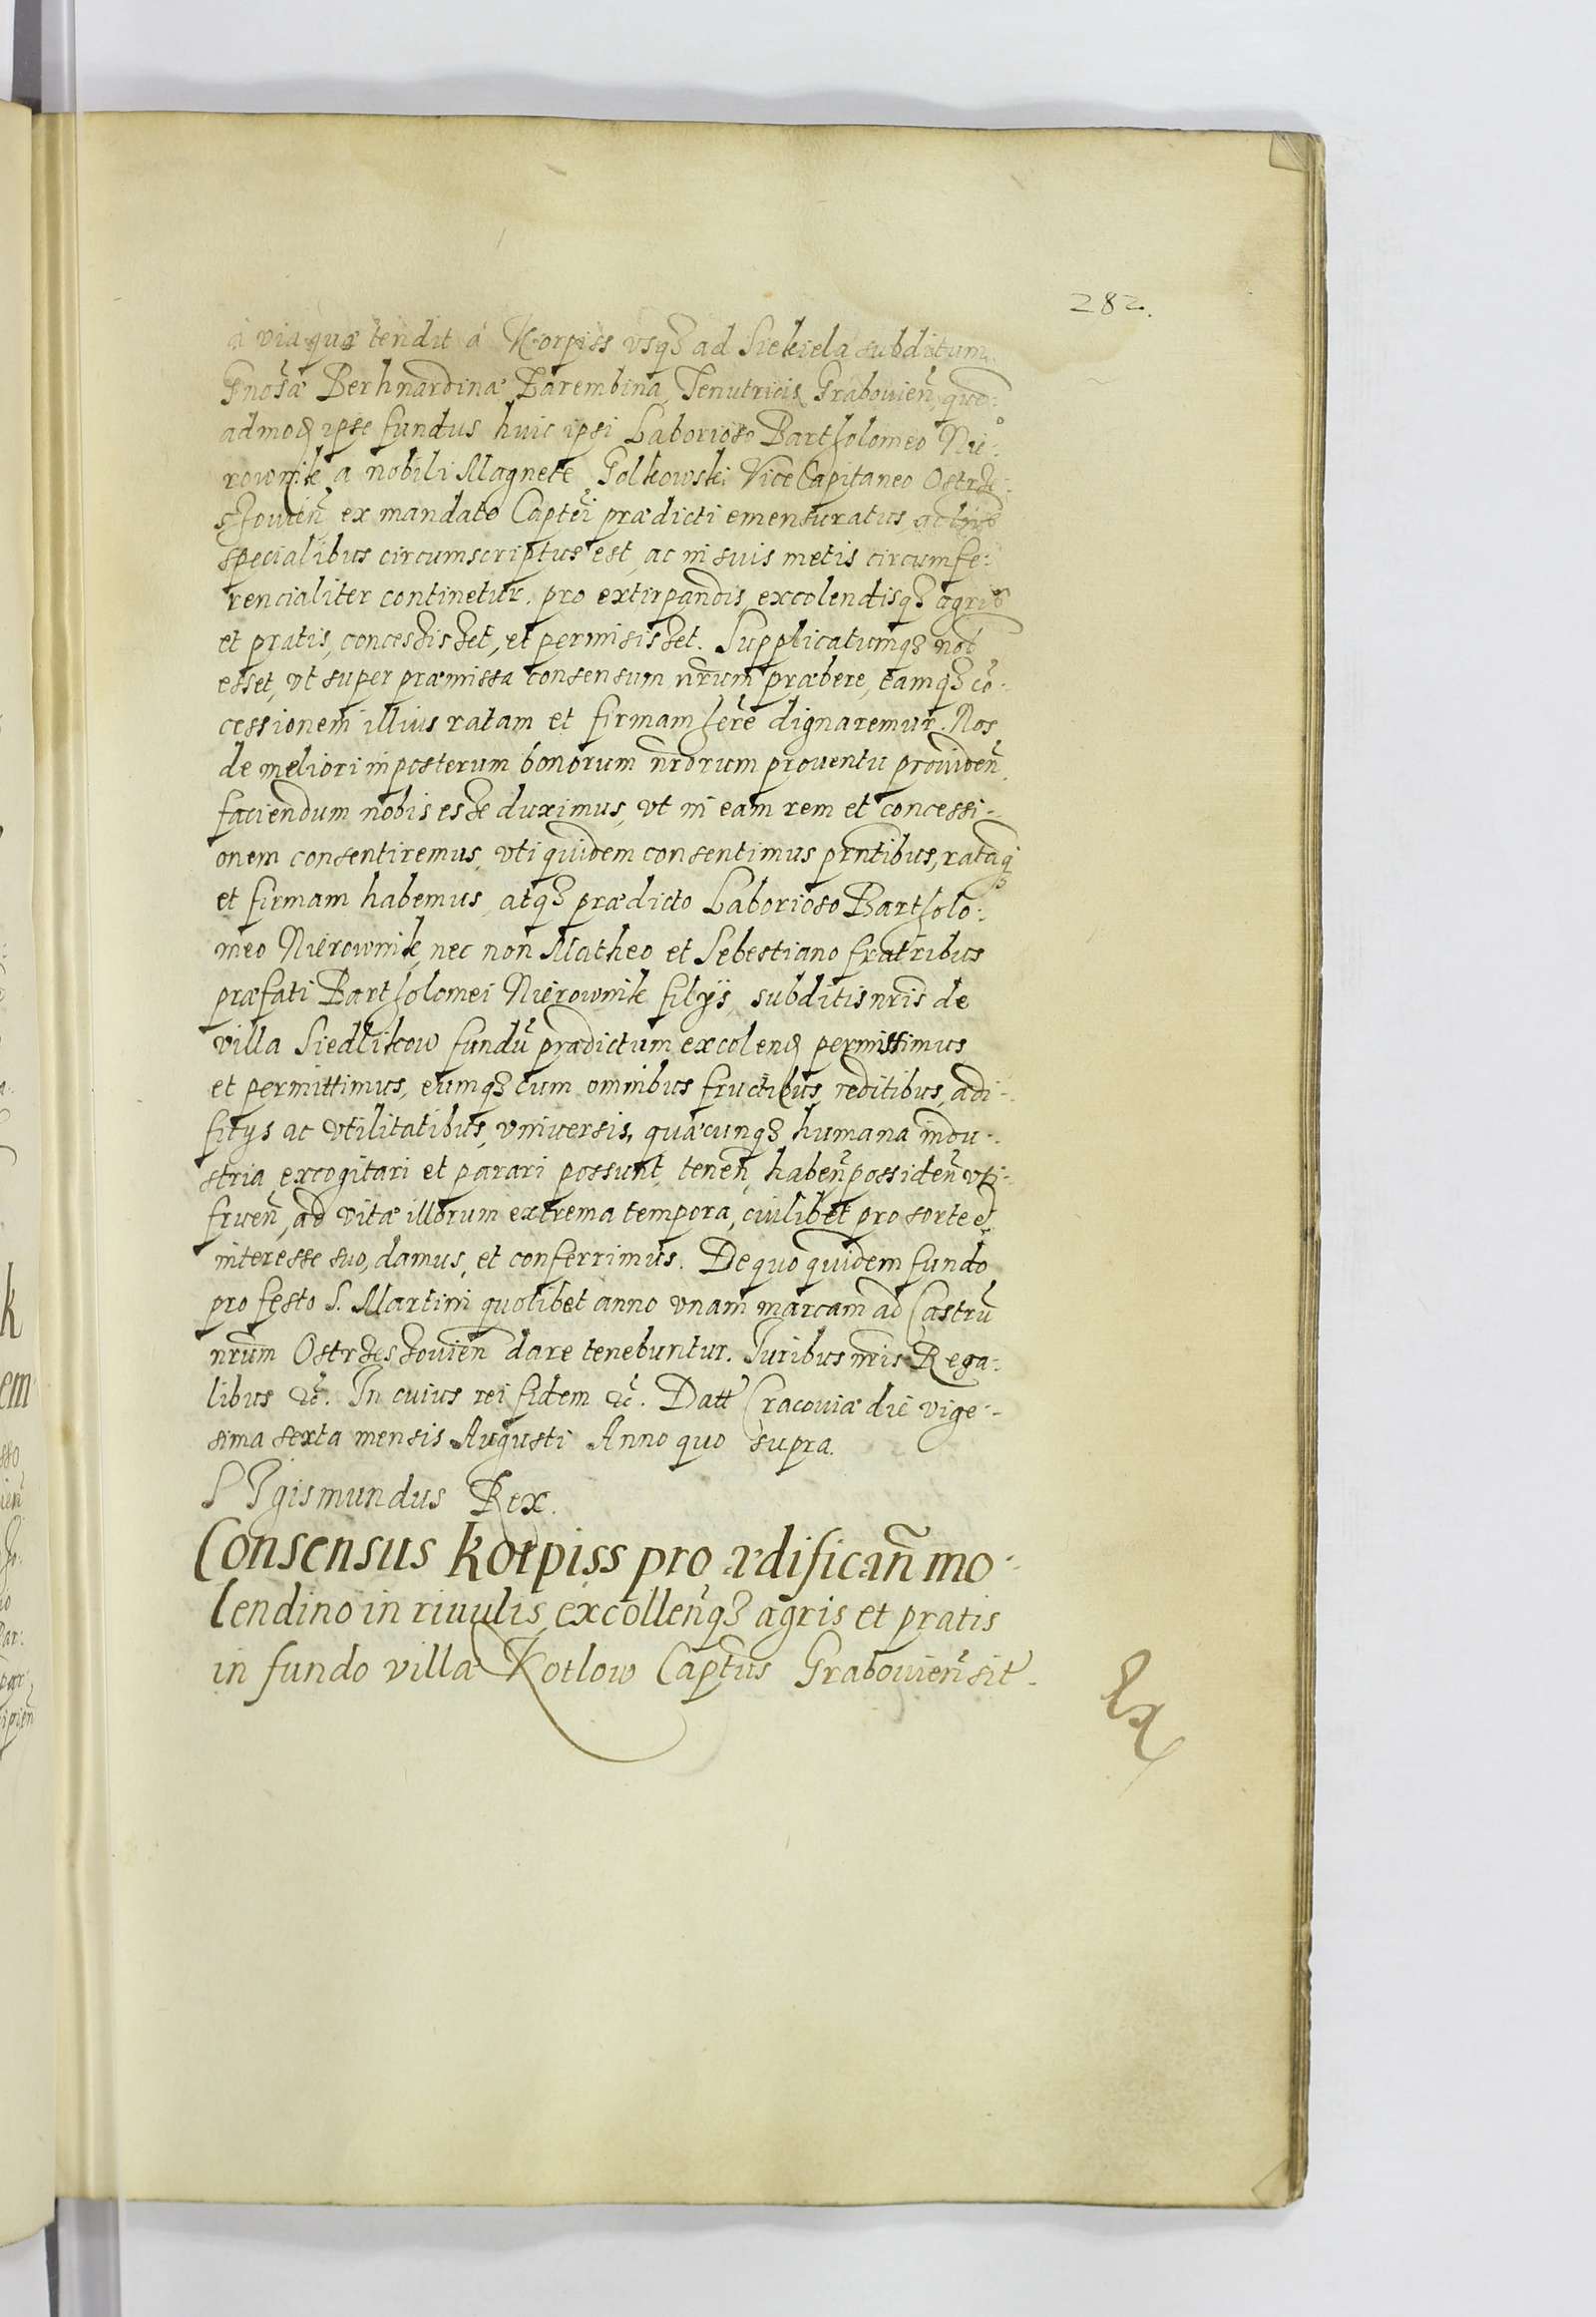 282.
à via quæ tendit à Korpiss vsq3 ad Siekiela subditum
Gnosæ Berhnardinæ Zarembina Tenutricis Grabouien̄, que͂-
admoꝺ ipse fundus huic ipsi Laborioso Bartholomeo Nie-
rownik a nobili Magnete Golkowski ViceCapitaneo Ostrze-
szouien̄ ex mandato Captēi prædicti emensuratus,
specialibus circumscriptus est, ac in suis metis circumfe-
rencialiter continetur. pro extirpandis, excolendisq3 agris
et pratis, concessisset, et permisisset. Supplicatumq3 nob̄
esset, vt super præmissa consensum nr̄um præbere, eamq3 co͂-
cessionem illius ratam et firmam h̄ere dignaremur. Nos
de meliori in posterum bonorum nr̄orum prouentu prouiden̄,
faciendum nobis esse duximus, vt in eam rem et concessi-
onem consentiremus, vti quidem consentimus pn̄tibus, ratāq3
et firmam habemus, atq3 prædicto Laborioso Bartholo-
meo Nierownik, nec non Matheo et Sebestiano fratribus
præfati Bartholomei Nierownik filÿs, subditis nr̄is de
villa Siedlikow fundū prædictum excolenꝺ permissimus
et permittimus, eumq3 cum omnibus fructibus, reditibus, ædi-
ficys ac vtilitatibus, vniuersis, quæcunq3 humana indu-
stria excogitari et parari possunt, tenen̄, haben̄ possiden̄ vti-
fruen̄, ad vitæ illorum extrema tempora, cuilibet pro sorte et
interesse suo, damus, et conferrimus. De quo quidem fundo
pro festo S. Martini quolibet anno vnam marcam ad Castrū
nr̄um Ostrzeszouien̄ dare tenebuntur. Iuribus nr̄is Rega-
libus &c̄. In cuius rei fidem &c̄. Datt Cracouiæ die vige-
sima sexta mensis Augusti Anno quo supra.
Sigismundus Rex.
Consensus Korpiss pro ædifican̄ mo-
lendino in riuulis, excollen̄q3 agris et pratis
in fundo villæ Kotlow Captūs Grabouien̄ sit̄.